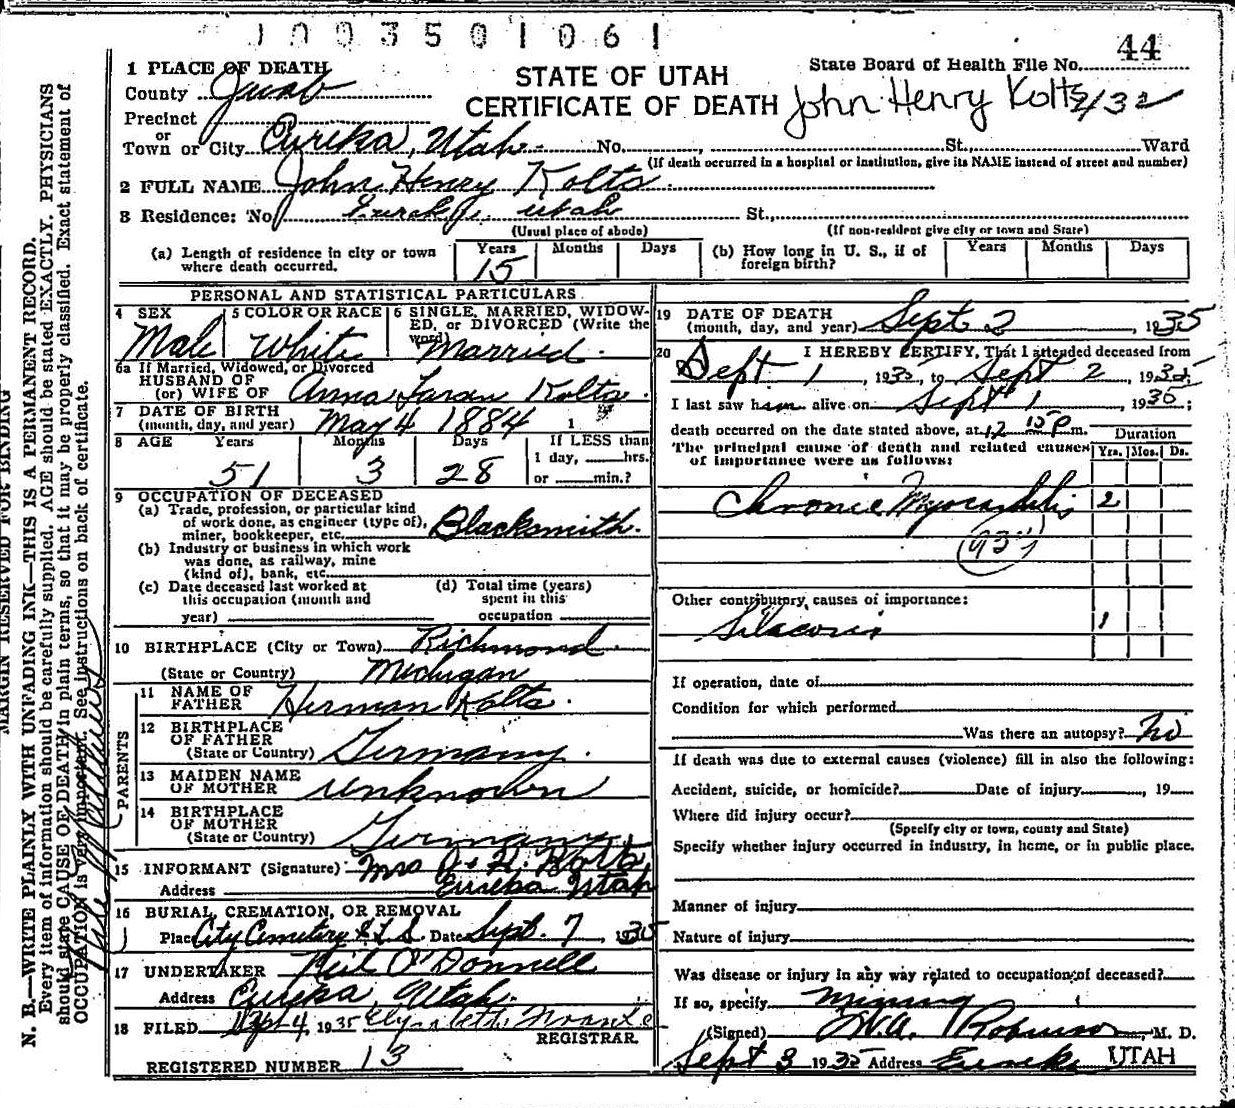 1003501061
44
1 PLACE OF DEATH
STATE OF UTAH
State Board of Health File No.
County Juab
CERTIFICATE OF DEATH
John Henry Kolts
Precinct
or
Town or City Eureka, Utah. No. St., Ward
(If death occurred in a hospital or institution, give its NAME instead of street and number)
2 FULL NAME John Henry Kolts
3 Residence: No. Eureka, Utah St.,
(Usual place of abode) (If non-resident give city or town and State)
(a) Length of residence in city or town where death occurred. Years 15 Months Days (b) How long in U. S., if of foreign birth? Years Months Days
PERSONAL AND STATISTICAL PARTICULARS
4 SEX Male 5 COLOR OR RACE White 6 SINGLE, MARRIED, WIDOWED, or DIVORCED (Write the word) Married.
6a If Married, Widowed, or Divorced
HUSBAND OF
(or) WIFE OF Anna Kolts.
7 DATE OF BIRTH
(month, day, and year) May 4 1884 1
8 AGE Years 51 Months 3 Days 28 If LESS than 1 day, hrs. or min.?
9 OCCUPATION OF DECEASED
(a) Trade, profession, or particular kind
of work done, as engineer (type of),
miner, bookkeeper, etc. Blacksmith.
(b) Industry or business in which work
was done, as railway, mine
(kind of), bank, etc.
(c) Date deceased last worked at this occupation (month and year)
(d) Total time (years) spent in this occupation
10 BIRTHPLACE (City or Town) Richmond.
(State or Country) Michigan
PARENTS
11 NAME OF FATHER Herman Kolts.
12 BIRTHPLACE OF FATHER
(State or Country) Germany.
13 MAIDEN NAME OF MOTHER Unknown
14 BIRTHPLACE OF MOTHER
(State or Country) Germany
15 INFORMANT (Signature) Mrs J. H. Kolts
Address Eureka Utah
16 BURIAL, CREMATION, OR REMOVAL
Place City Cemetery Date Sept. 7, 1935
17 UNDERTAKER Neil O'Donnell
Address Eureka, Utah.
18 FILED Sept 4, 1935
REGISTRAR.
REGISTERED NUMBER 13
19 DATE OF DEATH
(month, day, and year) Sept 2, 1935
20 I HEREBY CERTIFY, That I attended deceased from
Sept 1, 1935, to Sept 2, 1935.
I last saw him alive on Sept 1 1935;
death occurred on the date stated above, at 12 15 P m.
Duration
The principal cause of death and related causes
of importance were as follows: Yrs. Mos. Ds.
Chronic Myocarditis 2
Other contributory causes of importance:
Silacosis 1
If operation, date of
Condition for which performed
Was there an autopsy? No
If death was due to external causes (violence) fill in also the following:
Accident, suicide, or homicide? Date of injury, 19
Where did injury occur?
(Specify city or town, county and State)
Specify whether injury occurred in industry, in home, or in public place.
Manner of injury
Nature of injury
Was disease or injury in any way related to occupation of deceased?
If so, specify Mining
(Signed) Robinson, M. D.
Sept 3 1935 Address Eureka UTAH
MARGIN RESERVED FOR BINDING
N. B.—WRITE PLAINLY WITH UNFADING INK—THIS IS A PERMANENT RECORD.
Every item of information should be carefully supplied. AGE should be stated EXACTLY. PHYSICIANS
should state CAUSE OF DEATH in plain terms, so that it may be properly classified. Exact statement of
OCCUPATION is very important. See instructions on back of certificate.